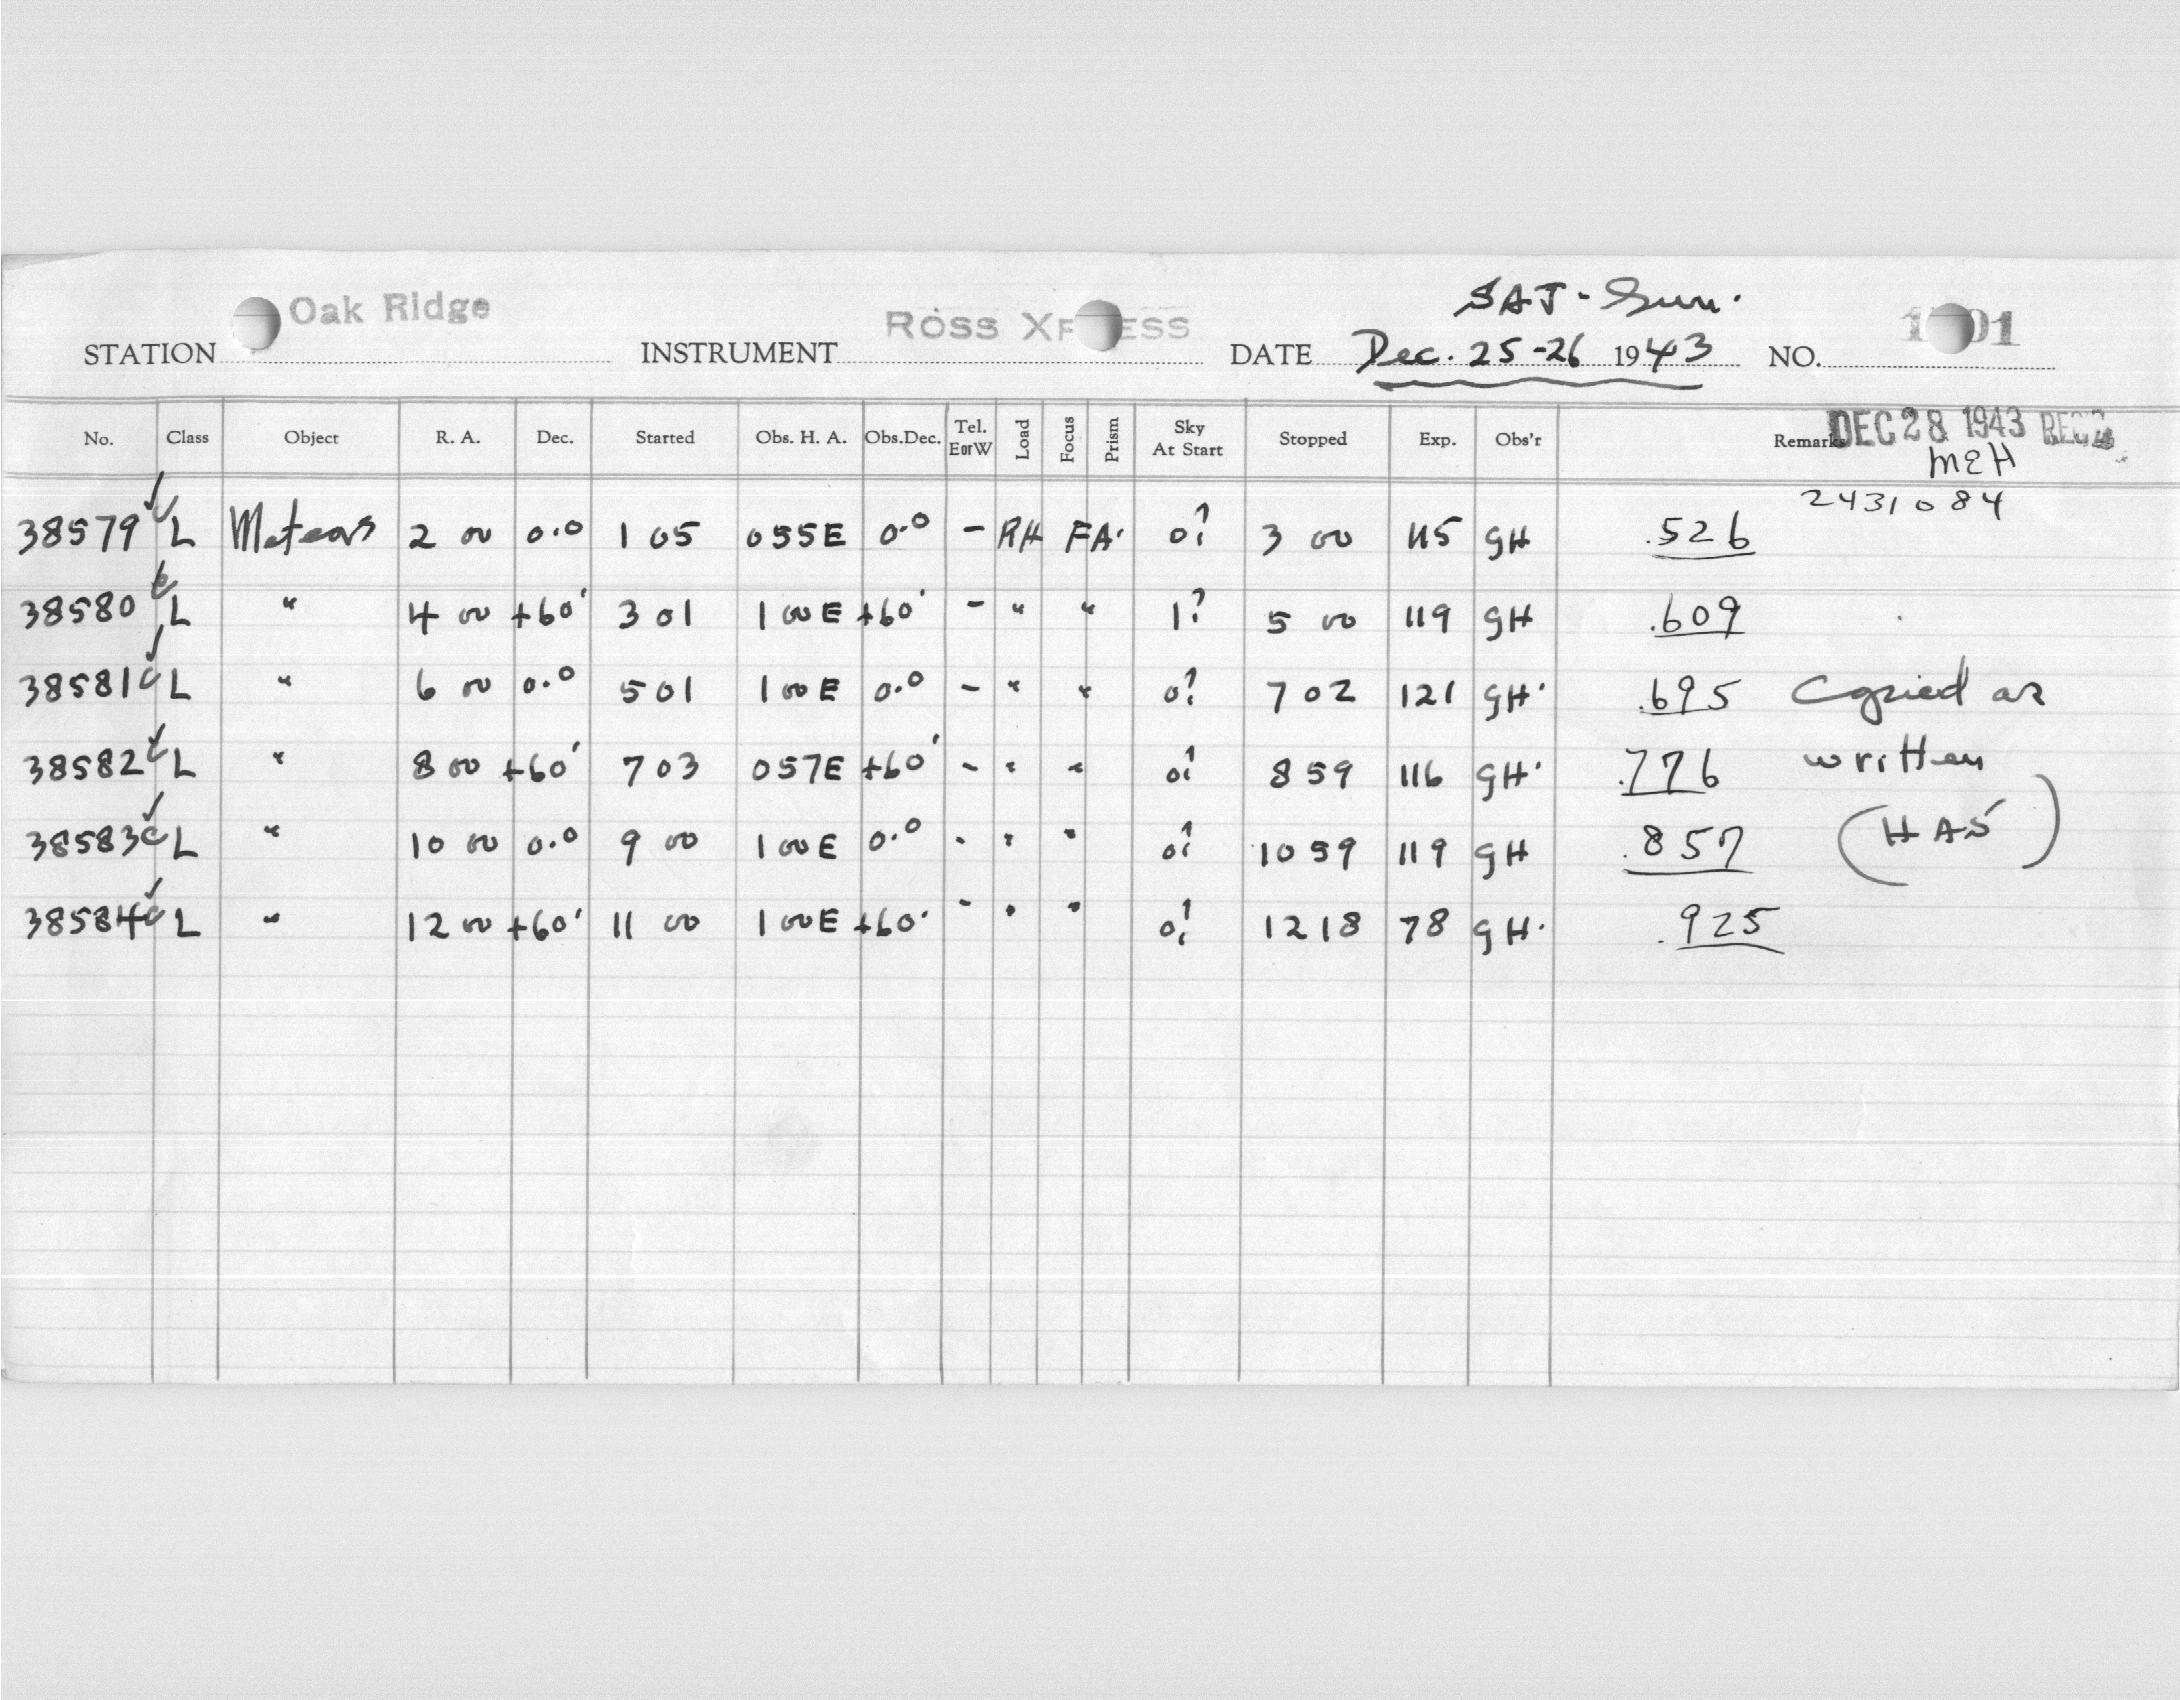 Oak Ridge SAT-Sun.
STATION INSTRUMENT DATE Dec. 25-26 1943 NO.
No. Class Object R. A. Dec. Started Obs. H. A. Obs.Dec. Tel. E or W Load Focus Prism Sky At Start Stopped Exp. Obs'r Remarks DEC 28 1943
MEH
2431084
38579 L Meteors 2 00 0.0 1 05 055E 0.0 - RH FA. 0? 3 00 115 GH .526
38580 L " 4 00 +60 3 01 1 00 E +60 - " " 1? 5 00 119 GH .609
38581 L " 6 00 0.0 5 01 1 00 E 0.0 - " " 0? 7 02 121 GH. .695 Copied as
38582 L " 8 00 +60 7 03 057E +60 - " " 0? 8 59 116 GH. .776 written
38583 L " 10 00 0.0 9 00 1 00 E 0.0 - " " 0? 10 59 119 GH .857 (HAS)
38584 L " 12 00 +60 11 00 1 00 E +60 - " " 0? 12 18 78 GH. .925